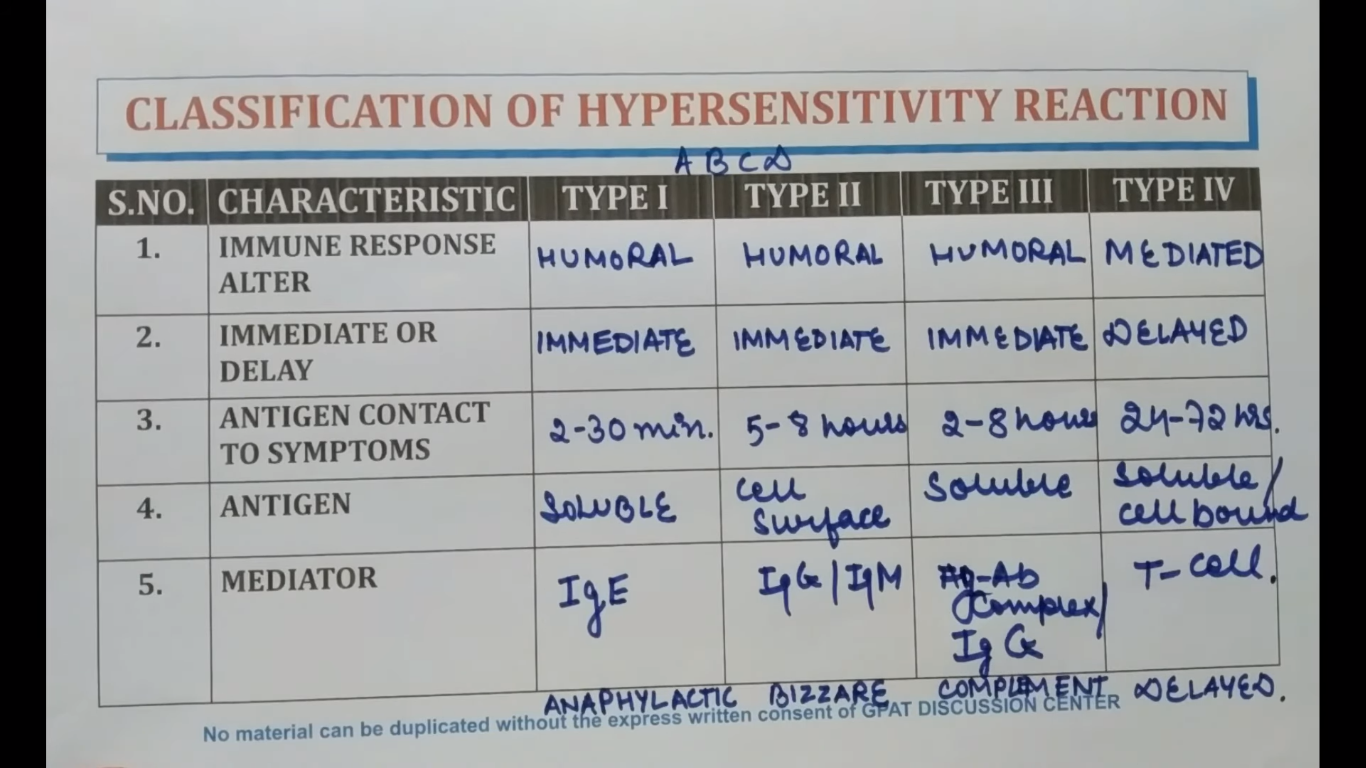 CLASSIFICATION OF HYPERSENSITIVITY REACTION
A B C D
S.NO. CHARACTERISTIC TYPE I TYPE II TYPE III TYPE IV
1. IMMUNE RESPONSE ALTER HUMORAL HUMORAL HUMORAL MEDIATED
2. IMMEDIATE OR DELAY IMMEDIATE IMMEDIATE IMMEDIATE DELAYED
3. ANTIGEN CONTACT TO SYMPTOMS 2-30 min. 5-8 hours 2-8 hours 24-72 hrs.
4. ANTIGEN SOLUBLE cell surface soluble soluble / cell bound
5. MEDIATOR IgE IgG/IgM Ag-Ab complex/ IgG T-cell.
ANAPHYLACTIC BIZZARE COMPLEMENT DELAYED.
No material can be duplicated without the express written consent of GPAT DISCUSSION CENTER